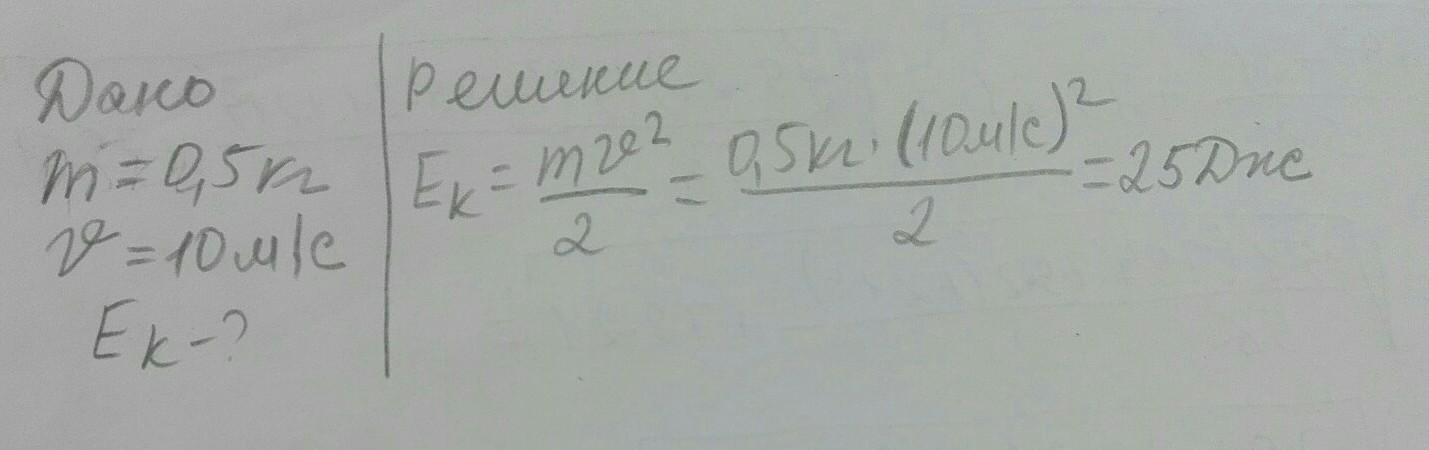 Дано
m = 0,5 кг
v = 10 м/с
Eк - ?
Решение
Eк = mv²/2 = 0,5 кг · (10 м/с)²/2 = 25 Дж